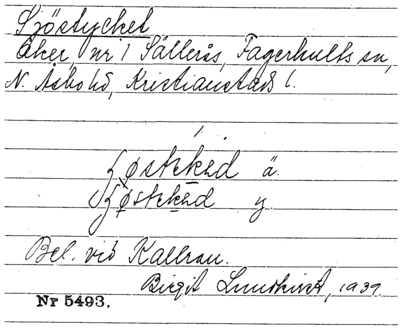 Sjöstycket
Åker, nr 1 Sällerås, Fagerhults sn,
N. Åsbo hd, Kristianstads l.
ä.
y.
Bel. vid Kallrau.
Birgit Lundkvist, 1939.
Nr 5493.